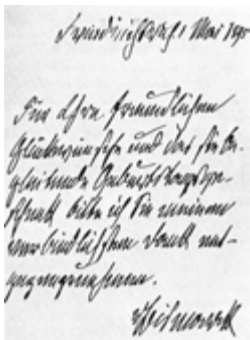 Friedrichsruh 1 Mai 1895
Für Ihre freundlichen
Glückwünsche und das sie be-
gleitende Geburtstagsge-
schenk bitte ich Sie meinen
verbindlichsten Dank ent-
gegenzunehmen.
v Bismarck